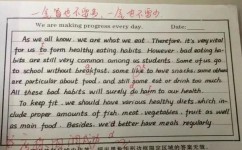 We are making progress every day. Date:
As we all know. we are what we eat. Therefore. it's very vital
for us to form healthy eating habits. However. bad eating ha-
bits are still very common among us students. Some of us go
to school without breakfast. some like to have snacks. some others
are particular about food. and still some eat or drink too much.
All these bad habits will surely do harm to our health.
To keep fit. we should have various healthy diets. which in-
clude proper amounts of fish. meat. vegetables. fruit as well
as main food. Besides. we'd better have meals regularly